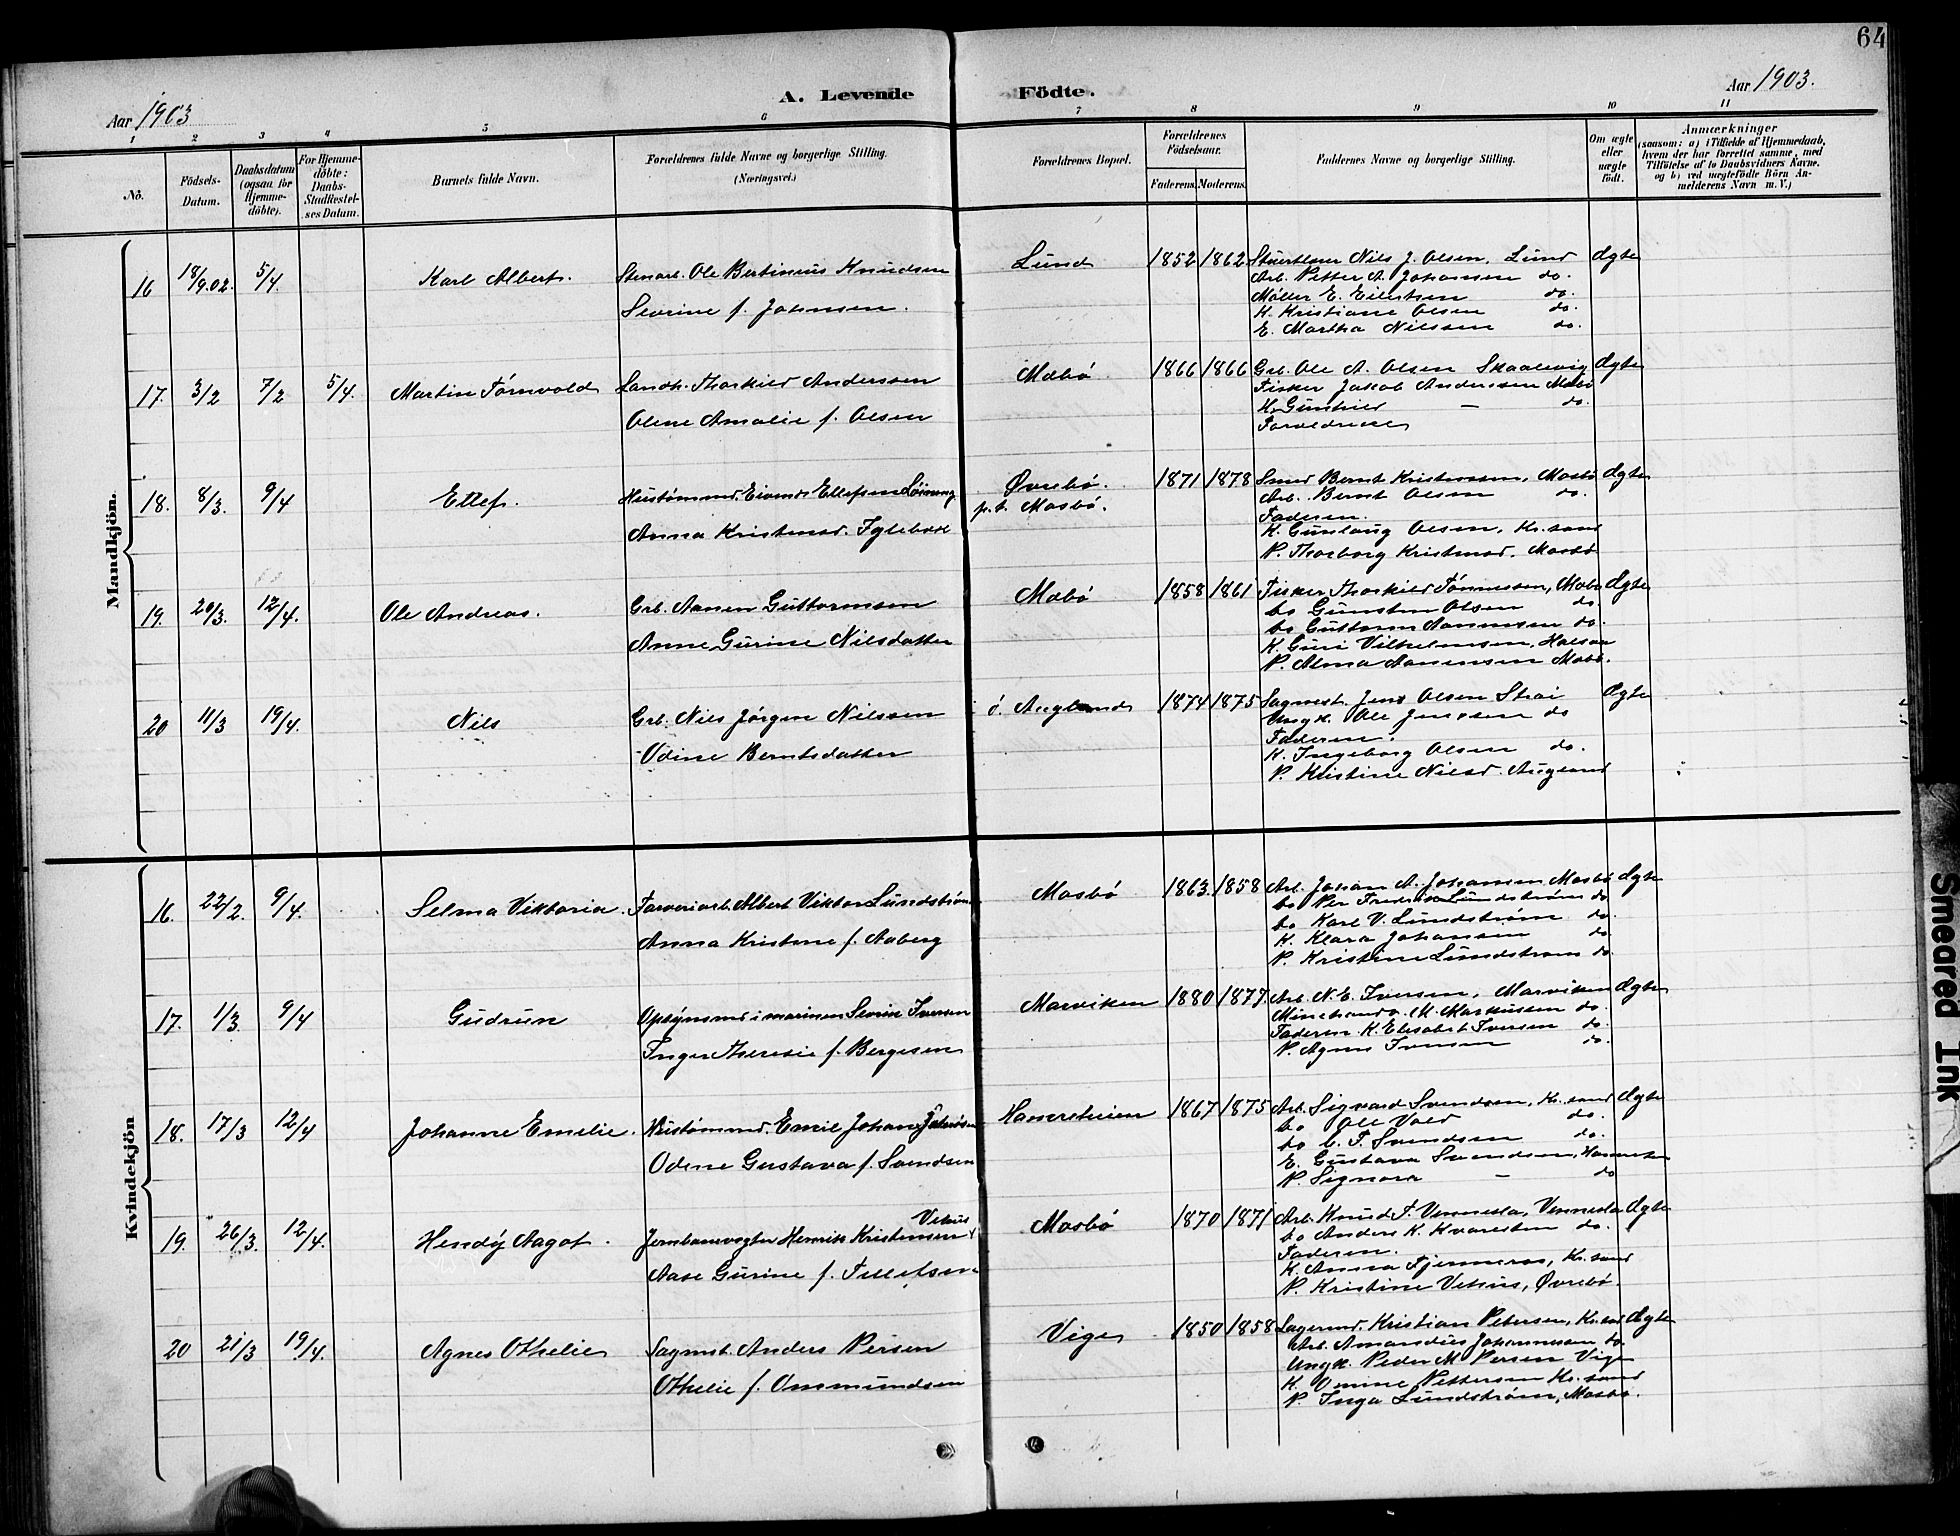 64
Aar 1903
A. Levende Födte.
Aar 1903.
1 2 3 4 5 6 7 8 9 10 11
No.
Födsels-Datum.
Daabsdatum (ogsaa for Hjemme-döbte).
For Hjemme-döbte: Daabs-Stadfæstel-ses Datum.
Barnets fulde Navn.
Forældrenes fulde Navne og borgerlige Stilling.
(Næringsvei.)
Forældrenes Bopæl.
Forældrenes Födselsaar.
Faderens. Moderens.
Faddernes Navne og borgerlige Stilling.
Om ægte eller uægte født.
Anmærkninger
(saasom: a) i Tilfælde af Hjemmedaab,
hvem der har forrettet samme, med
Tilföielse af to Daabsvidners Navne.
og b) ved uægtefödte Börn An-
melderens Navn m. V.)
Mandkjön.
16 18/9.02. 5/4. Karl Albert. Stenarb. Ole Bertinius Knudsen
Severine f. Johnsen.
Lund 1852 1862 Nils J. Olsen, Lund Ægte
Arb. Petter A. Johansen do.
Møller E. Eilertsen do.
K. Kristiane Olsen do.
E. Martha Nilssen do.
17. 3/2 7/2 5/4. Martin Tørnvold Landh. Thorkild Anderssen
Olene Amalie f. Olsen
Mæbø 1866 1866 Grb. Ole A. Olsen Skaalevig Ægte
Fisker Jakob Andersen Mæbø
K. Gunhild — do.
Forældrene
18. 8/3. 9/4 Ellef. Hustømmerm. Eivind Ellefsen
Anna Kristensd. Iglebæk
Øvrebø.
p.t. Mosbø. 1871 1878 Smed Bernt Kristensen, Mosbø Ægte
Arb. Bernt Olsen do.
Faderen.
K. Gunlaug Olsen, Kr.sand
P. Thorborg Kristensd. Mosbø
19. 20/3. 12/4. Ole Andreas. Grb. Aanen Guttormsen
Anne Gurine Nilsdatter
Mæbø 1858 1861 Fisker Thorkild Tønnesen, Mæbø Ægte
do Gunsten Olsen do.
do Guttorm Aanensen do.
K. Guri Vilhelmsen,
P. Alma Aanensen Mæbø.
20 11/3 19/4. Nils Grb. Nils Jörgen Nilssen
Odine Berntsdatter
ö. Augland 1874 1875 Sagmest. Jens Olsen Strai Ægte
Ungk. Ole Jenssen do
Faderen.
K. Ingeborg Olsen do.
P. Kristine Nilsd. Augland
Kvindekjön
16. 22/2. 9/4. Selma Viktoria. Farveriarb. Albert Viktor Lundström
Anna Kristine f. Aaberg
Mosbø 1863. 1858 Arb. Johan A. Johansen Mosbø Ægte
do Per Fredrik Lundström do
do Karl V. Lundström do.
K. Klara Johansen do
P. Kristine Lundström do.
17. 1/3. 9/4 Gudrun Opsynsmd i marinen Severin Iversen
Inger Theresie f. Bergesen
Marviken 1880 1877. Arb. N. E. Iversen, Marviken Ægte
M. Markussen do.
Faderen. K. Elisabet Iversen do.
P. Agnes Iversen do.
18. 17/3 12/4 Johanne Emelie. Hustømmerm. Emil Johan
Odine Gustava f. Svendsen
Hamreheien 1867 1875 Arb. Sigvard Svendsen, Kr.sand Ægte
do Ole Vold do.
do C. T. Svendsen do.
E. Gustava Svendsen,
P. Signora — do
19. 26/3. 12/4. Hendy Aagot. Jernbanevogter Henrik Kristensen Vehus
Aase Gurine f. Tellefsen
Mosbø 1870 1871 Arb. Knud T. Vennesla, Vennesla Ægte
do Anders K. Kvarsten do.
Faderen.
K. Anna Kr.sand
P. Kristine Vehus, Øvrebø.
20 21/3 19/4. Agnes Othelie Sagmst. Anders Persen
Othelie f. Ommundsen
Vige 1850 1858 Lagermd. Kristian Petersen, Kr.sand Ægte
Arb. Amandus Johannesen do
Ungk. Peder M Persen Vige
K. Omine Pettersen Kr.sand
P. Inga Lundström, Mosbø.
Smeared Ink